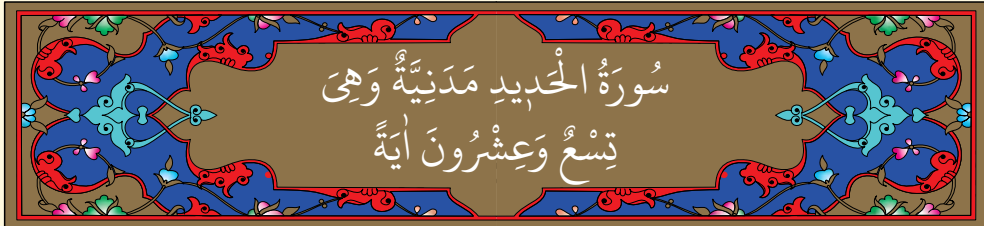 سُورَةُ الْحَدٖيدِ مَدَنِيَّةٌ وَهِىَ
تِسْعٌ وَعِشْرُونَ اٰيَةً